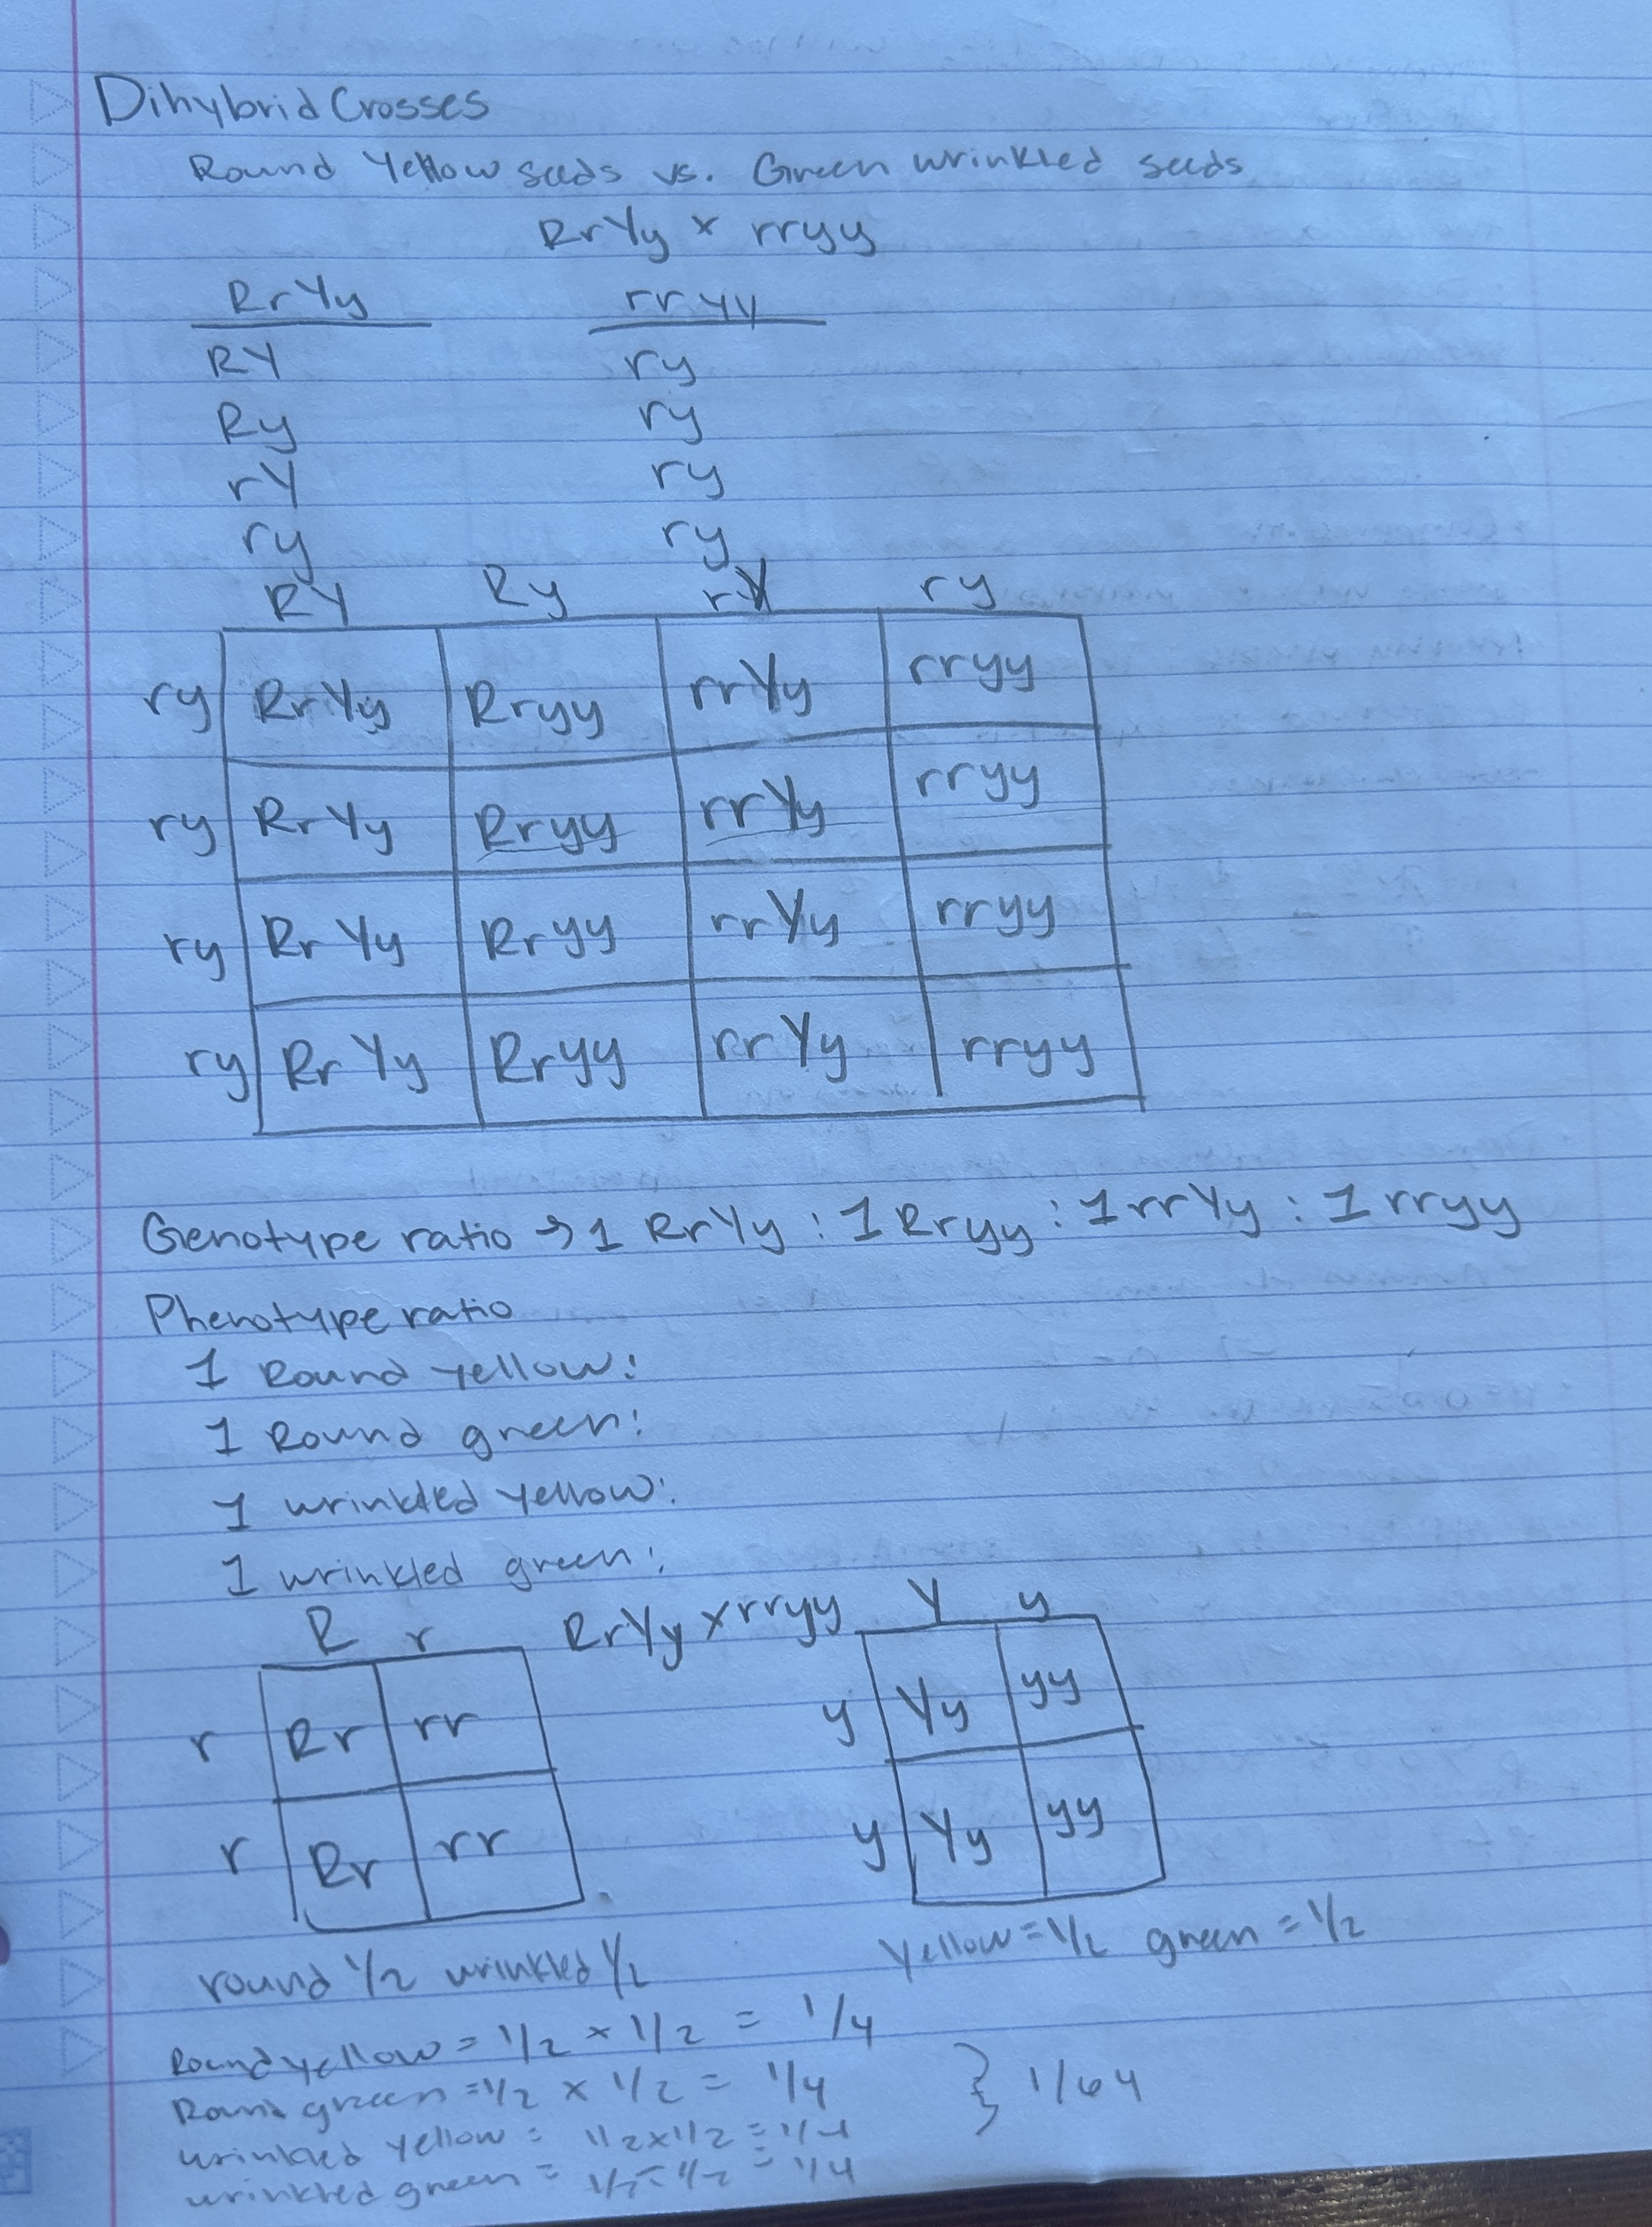 Dihybrid Crosses
Round Yellow seeds vs. Green wrinkled seeds
RrYy x rryy
RrYy rryy
RY ry
Ry ry
rY ry
ry ry
RY Ry rY ry
ry RrYy Rryy rrYy rryy
ry RrYy Rryy rrYy rryy
ry RrYy Rryy rrYy rryy
ry RrYy Rryy rrYy rryy
Genotype ratio → 1 RrYy : 1 Rryy : 1 rrYy : 1 rryy
Phenotype ratio
1 Round yellow:
1 Round green:
1 wrinkled yellow:
1 wrinkled green:
R r RrYy x rryy Y y
r Rr rr y Yy yy
r Rr rr y Yy yy
round 1/2 wrinkled 1/2 Yellow = 1/2 green = 1/2
Round yellow = 1/2 x 1/2 = 1/4
Round green = 1/2 x 1/2 = 1/4 } 1/64
wrinkled yellow = 1/2 x 1/2 = 1/4
wrinkled green = 1/2 1/2 = 1/4